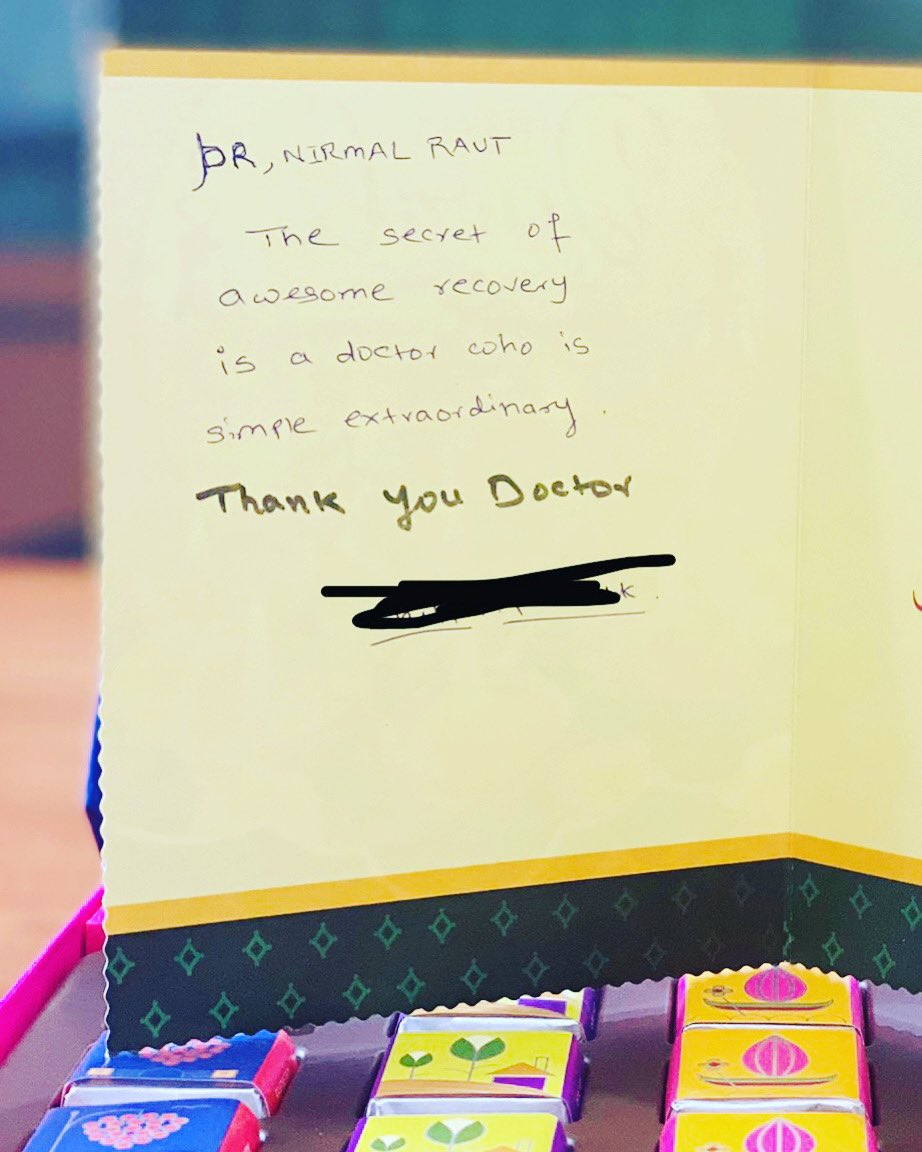 DR, NIRMAL RAUT
The secret of
awesome recovery
is a doctor who is
simple extraordinary.
Thank you Doctor